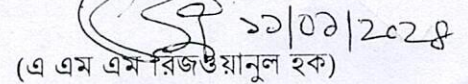 ১১/০১/২০২৪
(এ এম এম রিজওয়ানুল হক)